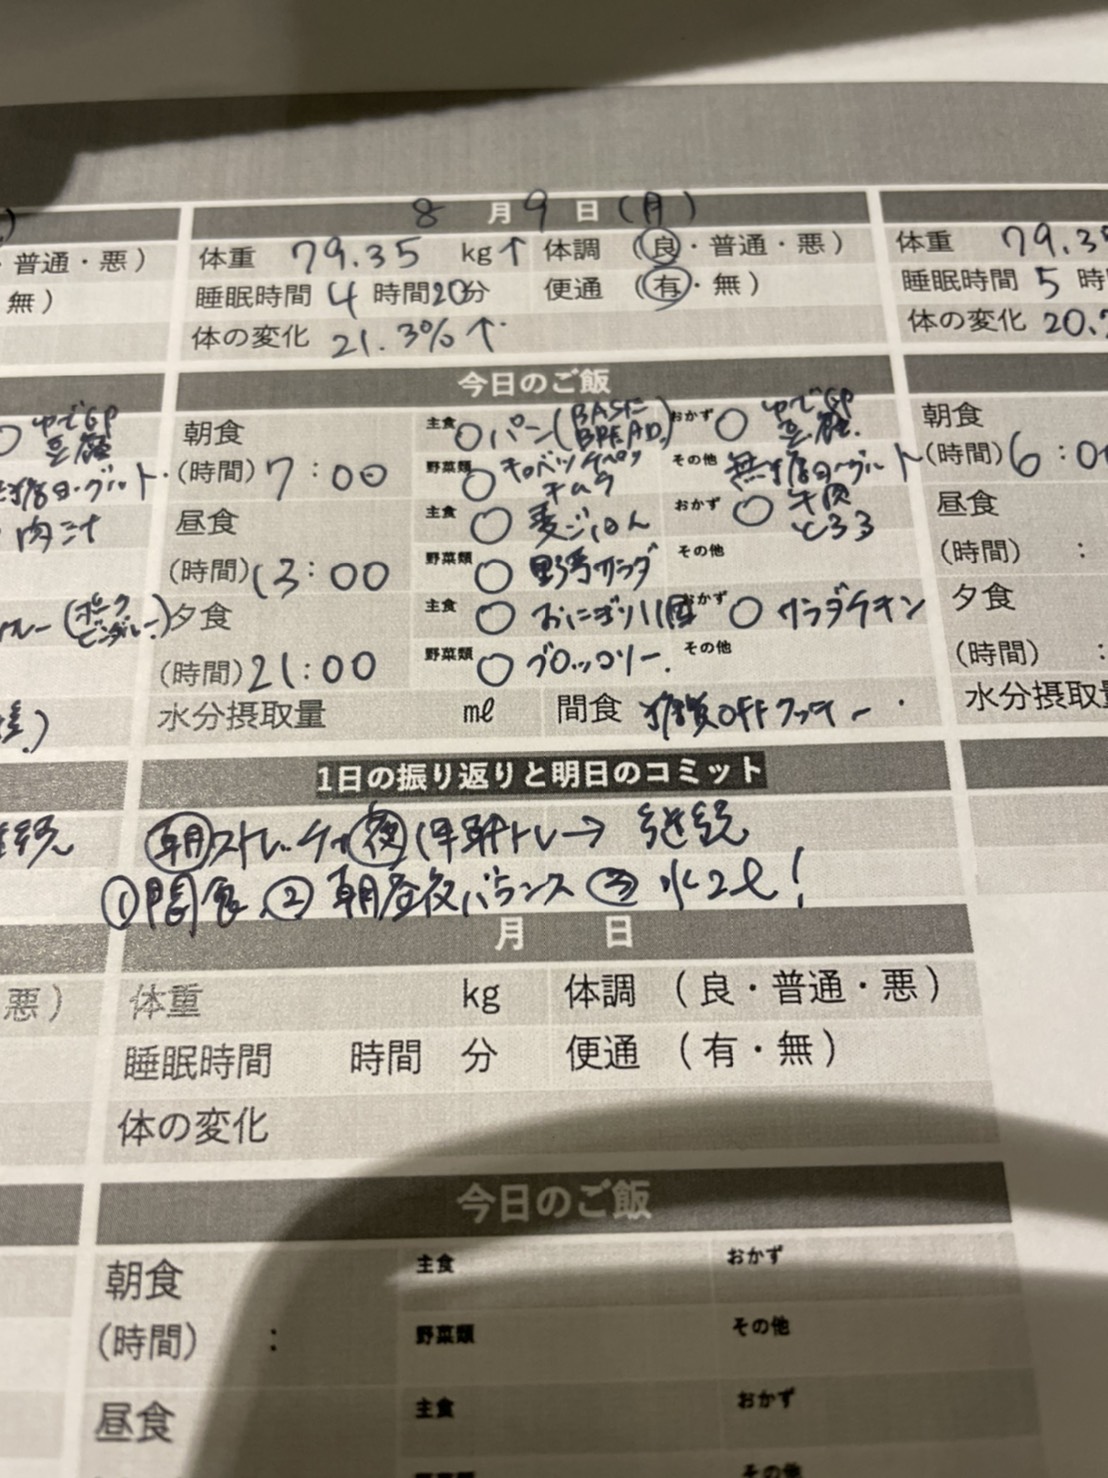 8 月 9 日 (月)
・普通・悪)
体重 79.35 kg↑ 体調 (良・普通・悪)
体重 79.3
無)
睡眠時間 4 時間20分 便通 (有・無)
睡眠時間 5 時
体の変化 21.3%↑
体の変化 20.
今日のご飯
ゆで卵
豆腐
朝食 主食 ○パン(BASE BREAD) おかず ○ ゆで卵 豆腐
(時間) 7:00 野菜類 ○ キャベツ キムチ その他 無糖ヨーグルト
昼食 主食 ○ 麦ごはん おかず ○ 牛肉 とろろ
(時間) 13:00 野菜類 ○ 野菜サラダ その他
夕食 主食 ○ おにぎり1個 おかず ○ サラダチキン
(時間) 21:00 野菜類 ○ ブロッコリー その他
水分摂取量 ml 間食 糖質OFFクッキー
朝食
(時間) 6:0
昼食
(時間) :
夕食
(時間) :
水分摂取量
1日の振り返りと明日のコミット
朝ストレッチ 夜 トレ→ 継続
①間食 ② 朝昼夜バランス ③ 水2ℓ!
月 日
悪)
体重 kg 体調 (良・普通・悪)
睡眠時間 時間 分 便通 (有・無)
体の変化
今日のご飯
朝食 主食 おかず
(時間) : 野菜類 その他
昼食 主食 おかず
野菜類 その他